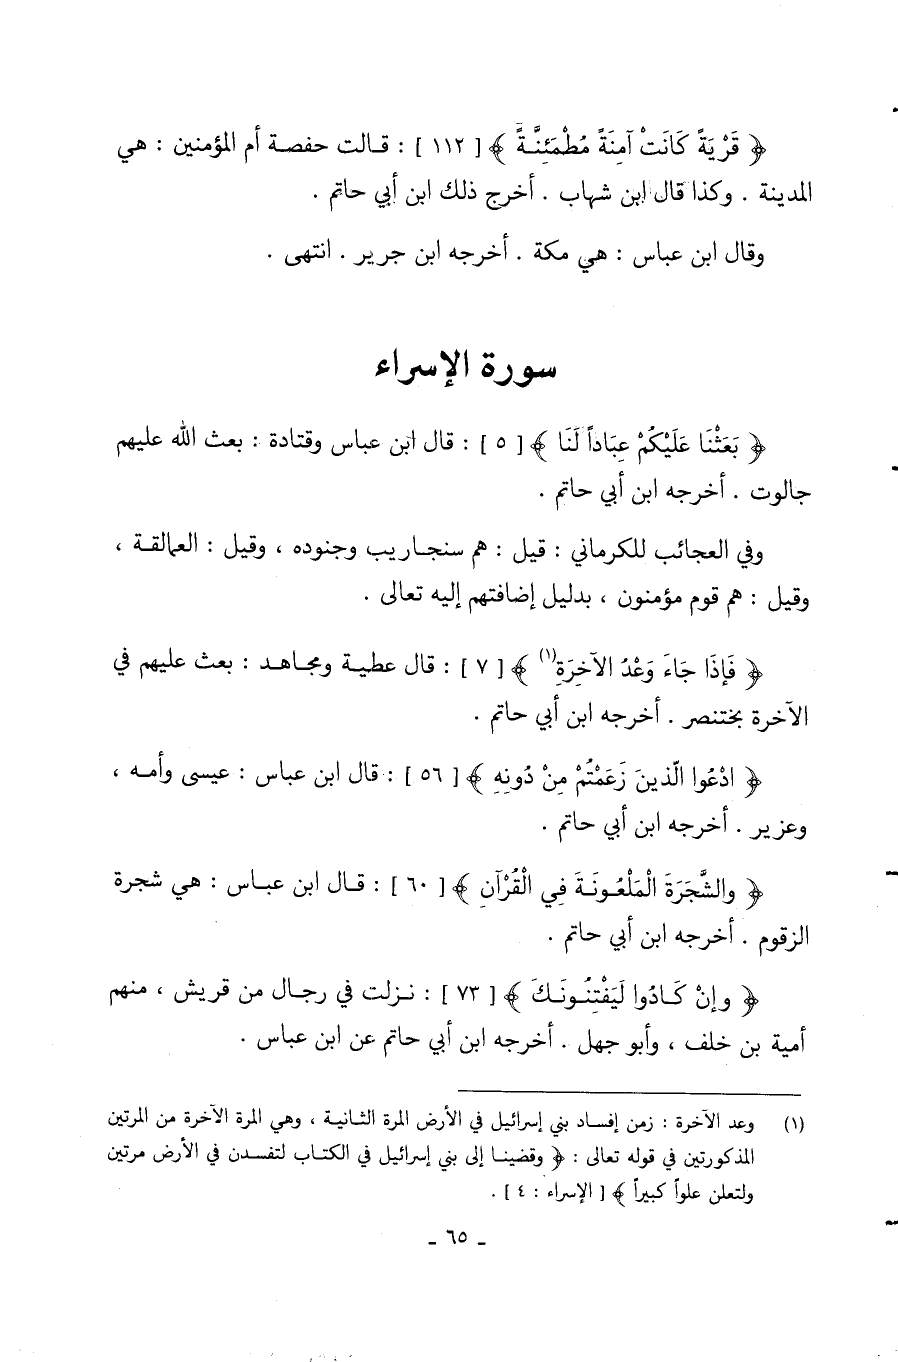 ﴿ قَرْيَةً كَانَتْ آمِنَةً مُطْمَئِنَّةً ﴾ [ ١١٢ ] : قـالت حفصـة أم المؤمنين : هي
المدينة . وكذا قال ابن شهاب . أخرج ذلك ابن أبي حاتم .
وقال ابن عباس : هي مكة . أخرجه ابن جرير . انتهى .
سورة الإسراء
﴿ بَعَثْنَا عَلَيْكُمْ عِبَاداً لَنَا ﴾ [ ٥ ] : قال ابن عباس وقتادة : بعث الله عليهم
جالوت . أخرجه ابن أبي حاتم .
وفي العجائب للكرماني : قيل : هم سنجـاريب وجنوده ، وقيل : العمالقـة ،
وقيل : هم قوم مؤمنون ، بدليل إضافتهم إليه تعالى .
﴿ فَإِذَا جَاءَ وَعْدُ الآخِرَةِ(١) ﴾ [ ٧ ] : قال عطيـة ومجاهـد : بعث عليهم في
الآخرة بختنصر . أخرجه ابن أبي حاتم .
﴿ ادْعُوا الَّذينَ زَعَمْتُمْ مِنْ دُونِهِ ﴾ [ ٥٦ ] : قال ابن عباس : عيسى وأمـه ،
وعزير . أخرجه ابن أبي حاتم .
﴿ والشَّجَرَةَ الْمَلْعُـونَـةَ فِي الْقُرْآنِ ﴾ [ ٦٠ ] : قـال ابن عبـاس : هي شجرة
الزقوم . أخرجه ابن أبي حاتم .
﴿ وإنْ كَـادُوا لَيَفْتِنُـونَـكَ ﴾ [ ٧٣ ] : نـزلت في رجـال من قريش ، منهم
أمية بن خلف ، وأبو جهل . أخرجه ابن أبي حاتم عن ابن عباس .
(١) وعد الآخرة : زمن إفسـاد بني إسرائيل في الأرض المرة الثـانيـة ، وهي المرة الآخرة من المرتين
المذكورتين في قوله تعالى : ﴿ وقضينـا إلى بني إسرائيل في الكتـاب لتفسـدن في الأرض مرتين
ولتعلن علواً كبيراً ﴾ [ الإسراء : ٤ ] .
ـ ٦٥ ـ